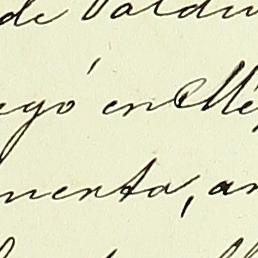 de Valdi
egó en Mé
menta, an